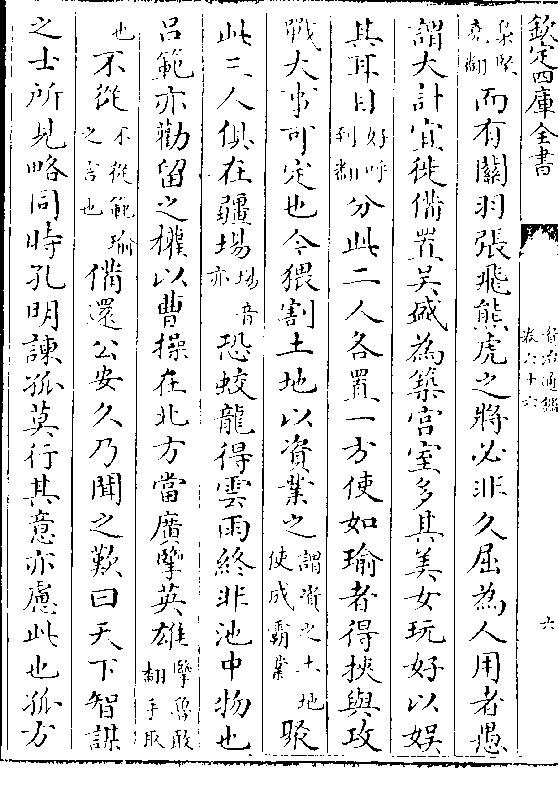 欽定四庫全書 資治通鑑 卷六十六 六
梟堅堯翻而有關羽張飛熊虎之將必非久屈為人用者愚
謂大計宜徙備置吳盛為築宮室多其美女玩好以娛
其耳目好呼到翻分此二人各置一方使如瑜者得挾與攻
戰大事可定也今猥割土地以資業之謂資之土地使成霸業聚
此三人俱在疆場場音亦恐蛟龍得雲雨終非池中物也
呂範亦勸留之權以曹操在北方當廣擥英雄擥魯敢翻手取
也不從不從範瑜之言也備還公安久乃聞之歎曰天下智謀
之士所見略同時孔明諫孤莫行其意亦慮此也孤方